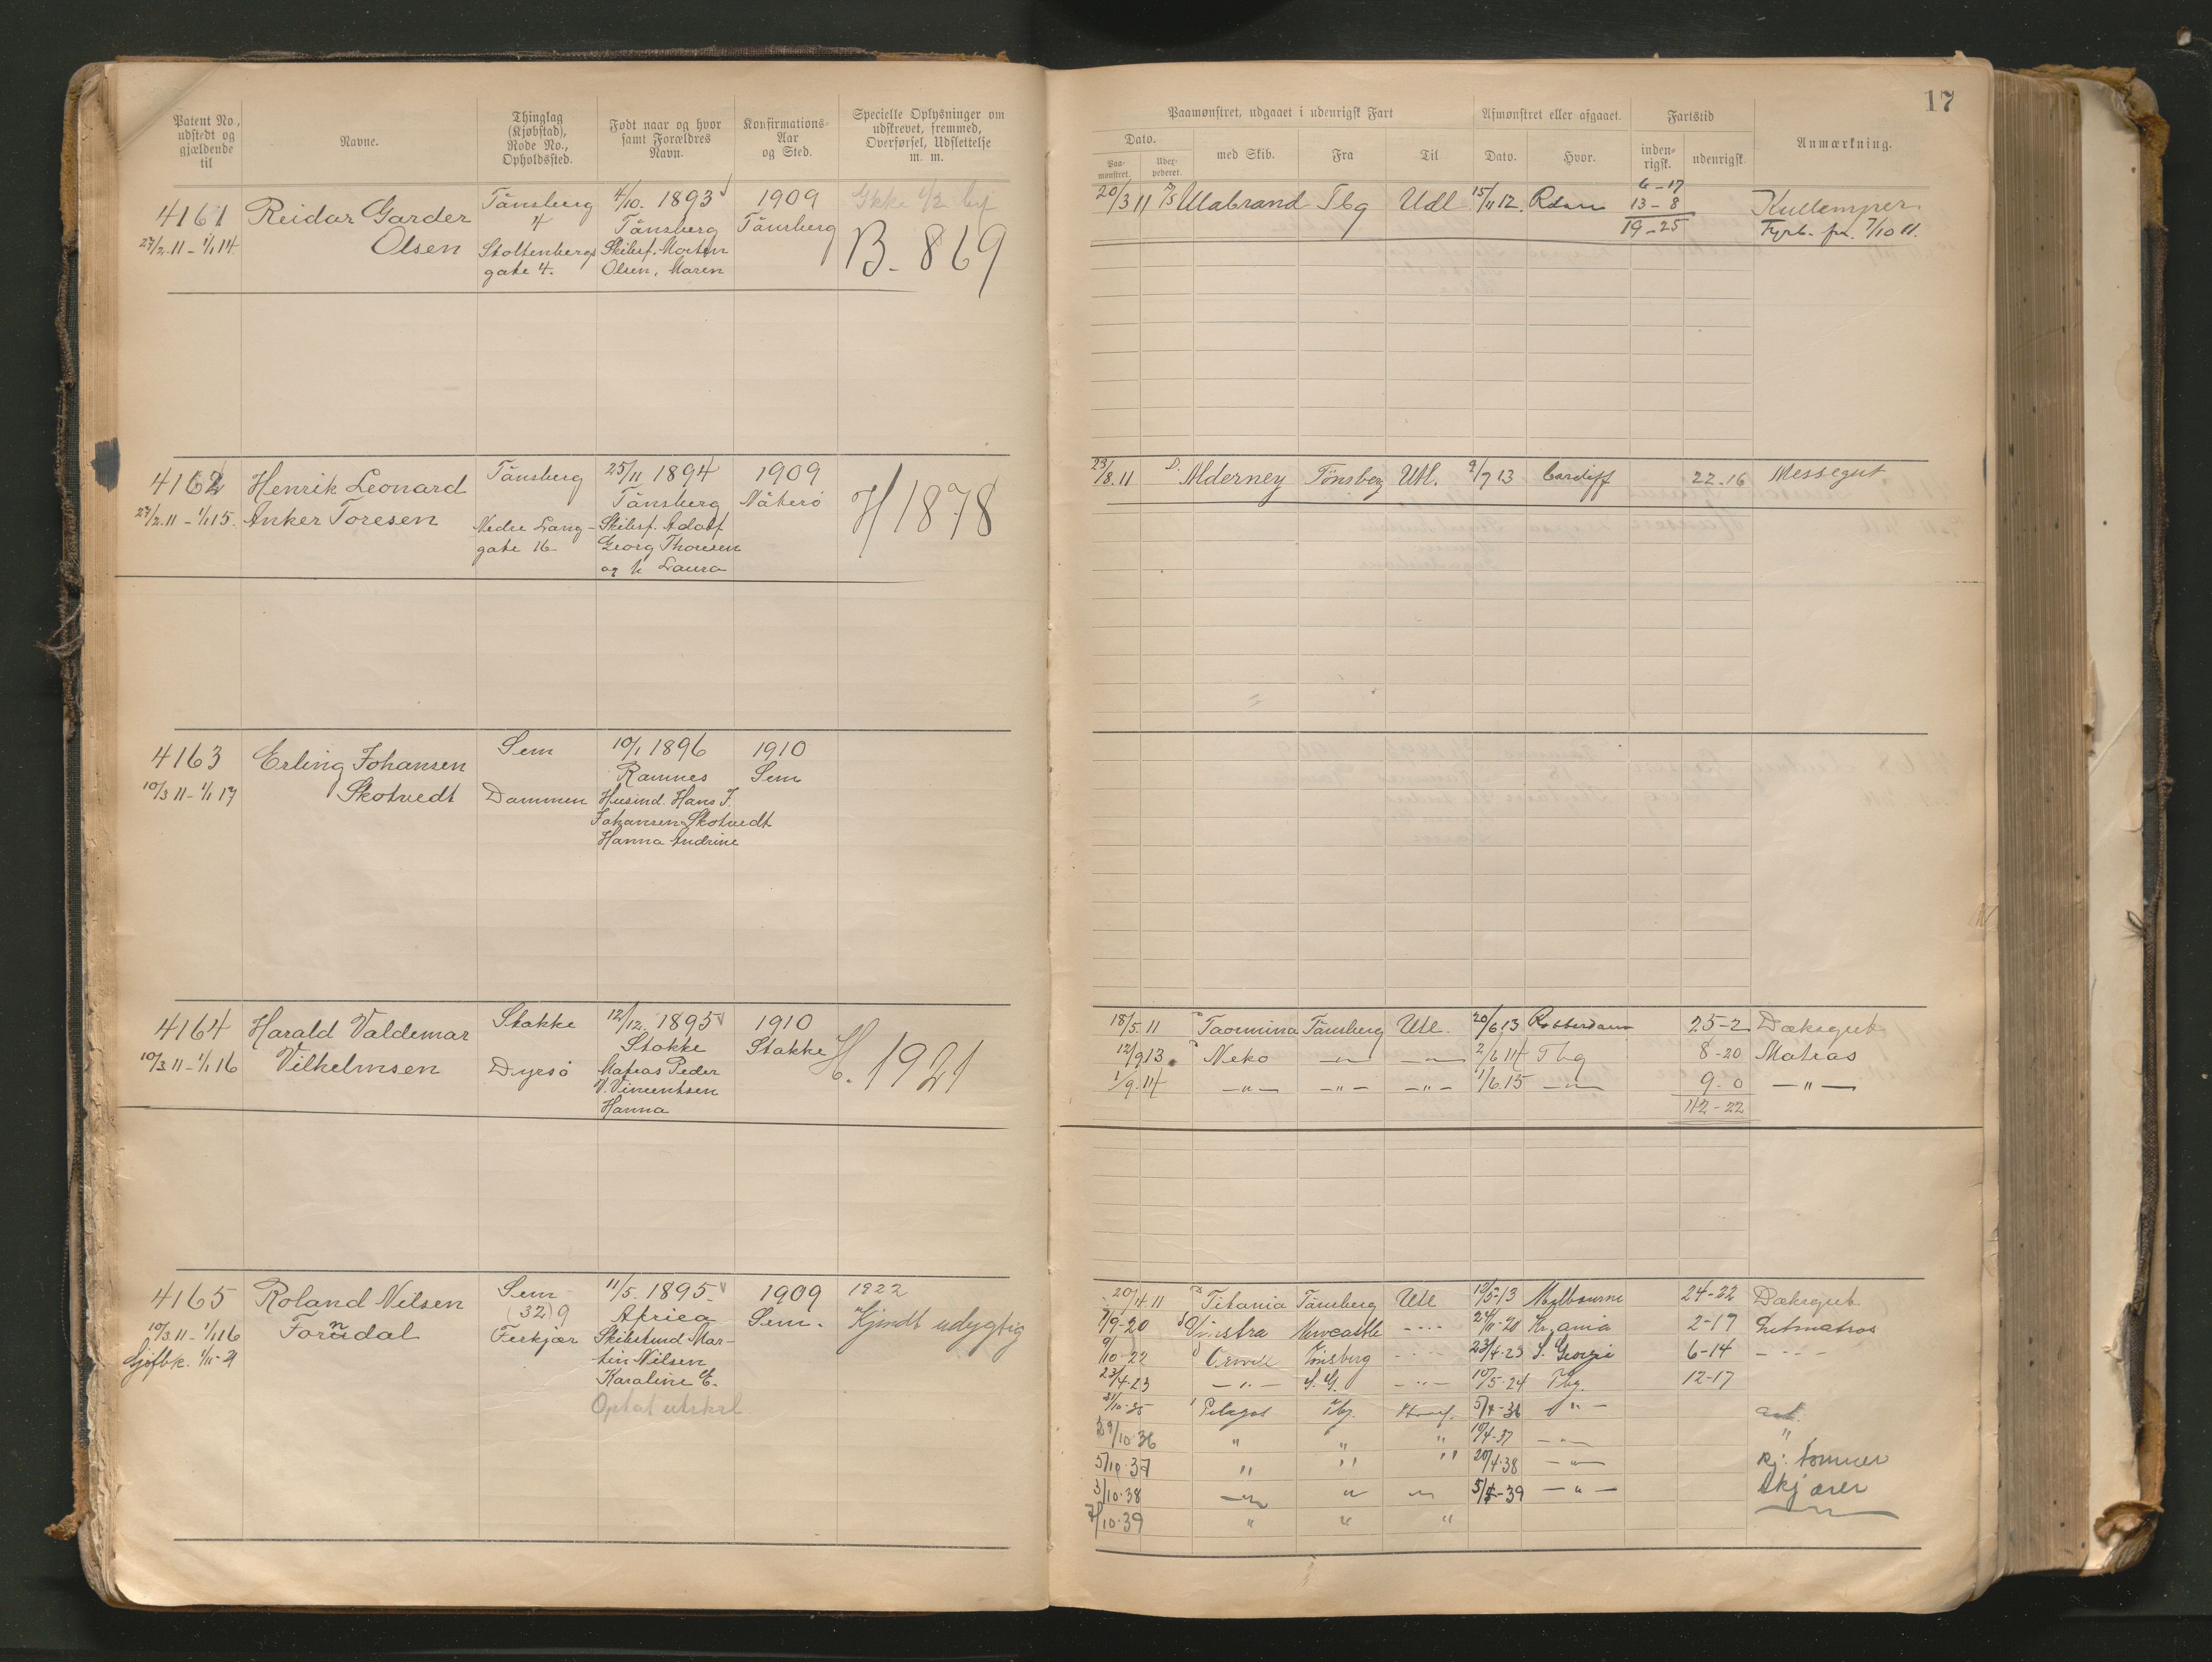 17
Patent No., udstedt og gjældende til
Navne.
Thinglag (Kjøbstad), Rode No., Opholdssted.
Født naar og hvor samt Forældres Navn.
Konfirmations-Aar og Sted.
Specielle Oplysninger om udskrevet, fremmed, Overførsel, Udslettelse m. m.
Paamønstret, udgaaet i udenrigsk Fart
Afmønstret eller afgaaet.
Fartstid
Anmærkning.
Dato.
Paa-mønstret.
med Skib.
Fra
Til
Dato.
Hvor.
inden-rigsk.
udenrigsk.
4161
27/2.11 - 1/1 14.
Reidar Garder
Olsen
Tönsberg
4
Stoltenbergs
gate 4.
4/10. 1893
Tönsberg
Skibsf. Morten
Olsen, Maren
1909
Tönsberg
B. 869
20/3 11
Ulabrand
Tbg
Udl
15/11 12.
Rdam
6-17
13-8
19-25
Kullemper
Fyrb. fra 7/10 11.
4162
27/2.11 - 1/1 15.
Henrik Leonard
Anker Toresen
Tönsberg
Nedre Lang-
gate 16
25/11 1894
Tönsberg
Skibsf. Adolf
Georg Thoresen
og h. Laura
1909
Nöterö
H 1878
23/8.11
D. Alderney
Tönsberg
Utl.
9/7 13
Cardiff
22-16
Messegut
4163
10/3 11 - 1/1 17
Erling Johansen
Skotvedt
Sem
Dammen
10/1 1896
Ramnes
Husmd. Hans J.
Johansen Skotvedt
Hanna Andrine
1910
Sem
4164
10/3 11 - 1/1 16
Harald Valdemar
Vilhelmsen
Stokke
Dyrsö
12/12. 1895
Stokke
Matros Peder
V. Vincentsen
Hanna
1910
Stokke
H. 1921
18/5.11
Taormina
Tönsberg
Utl.
20/6 13
Rotterdam
25-2
Dæksgut
12/9 13.
Neko
—„—
—„—
2/6 14
Tbg
8-20
Matros
1/9.14
—„—
—„—
—„—
1/6.15
—„—
9-0
—„—
42-22
4165
10/3 11 - 1/1 16
Sjöfbk. 1/11-21
Roland Nilsen
Forndal
Sem
(32) 9
Ferkjær
11/5. 1895.
Africa
Skibstmd. Mar-
tin Nilsen
Karaline E.
1909
Sem.
1922
Kjendt udygtig
20/4 11
Titania
Tönsberg
Utl
12/5-13
Melbourne
24-22
Dæksgut
7/9-20
Vinstra
Newcastle
24/11-20
Kr.ania
2-17
Letmatros
9/10-22
Orwell
Tönsberg
23/4-23
S. Georgia
6-14
23/4-23
—„—
S. G.
—„—
10/5-24
Tbg.
12-17
21/10-35
Pelagos
Tbg.
5/4-36
—„—
29/10-36
„
„
„
10/4-37
—„—
„
5/10-37
„
„
„
20/4-38
—„—
tömmer
3/10-38
—„—
„
„
5/5-39
—„—
7/10-39
„
„
„